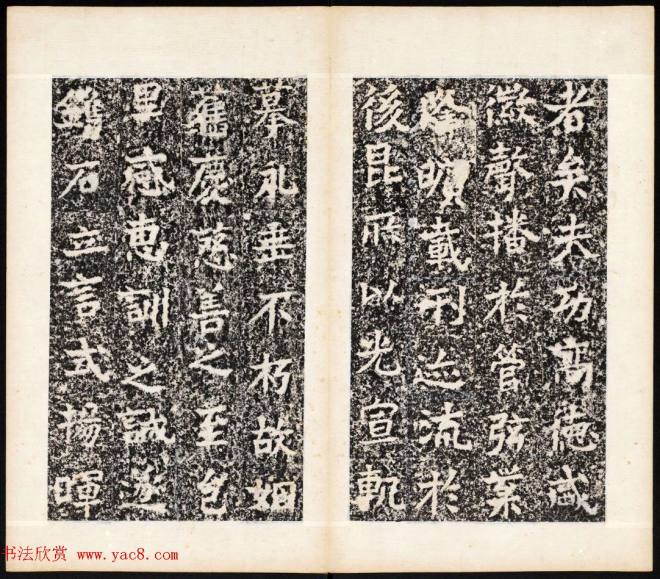 者矣夫功高德盛
徽聲播於管弦業
隆載刊迹流於
後昆所以光宣軌
摹永垂不朽故姻
舊慶慈善之至邑
里感惠訓之誠遂
鐫石立言式揚暉
书法欣赏 www.yac8.com